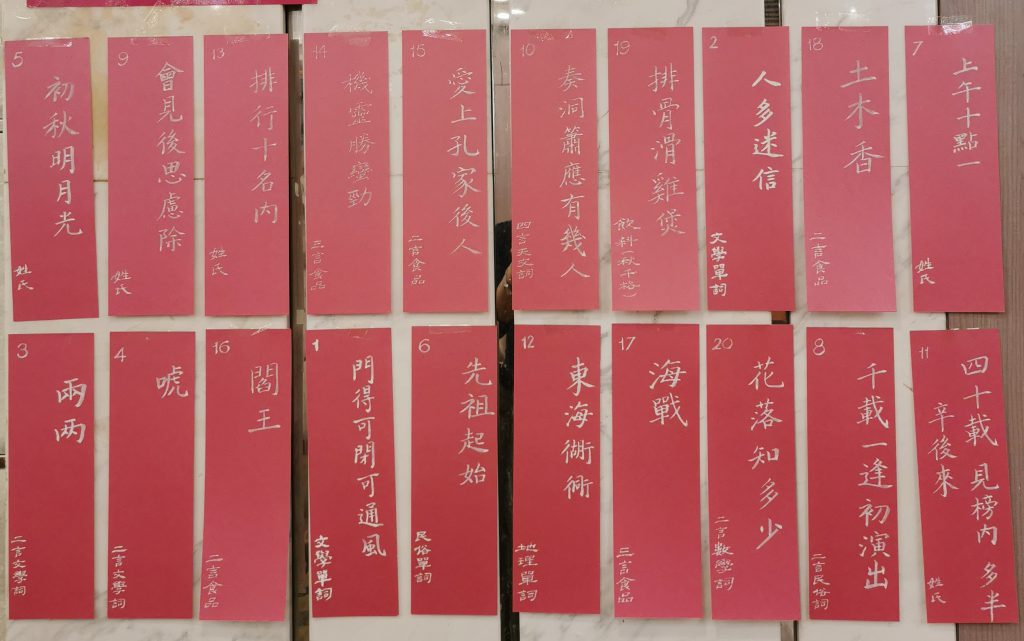 5
初秋明月光
姓氏
9
會見後思慮除
姓氏
13
排行十名內
姓氏
14
機靈勝蠻勁
三言食品
15
愛上孔家後人
二言食品
10
奏洞簫應有幾人
四言天文詞
19
排骨滑雞煲
飲料(秋千格)
2
人多迷信
文學單詞
18
土木香
二言食品
7
上午十點一
姓氏
3
兩两
二言文學詞
4
唬
二言文學詞
16
閻王
二言食品
1
門得可閉可通風
文學單詞
6
先祖起始
民俗單詞
12
東海衚衕
地理單詞
17
海戰
三言食品
20
花落知多少
二言數學詞
8
千載一逢初演出
二言民俗詞
11
四十載 見榜內 多半
辛後來
姓氏